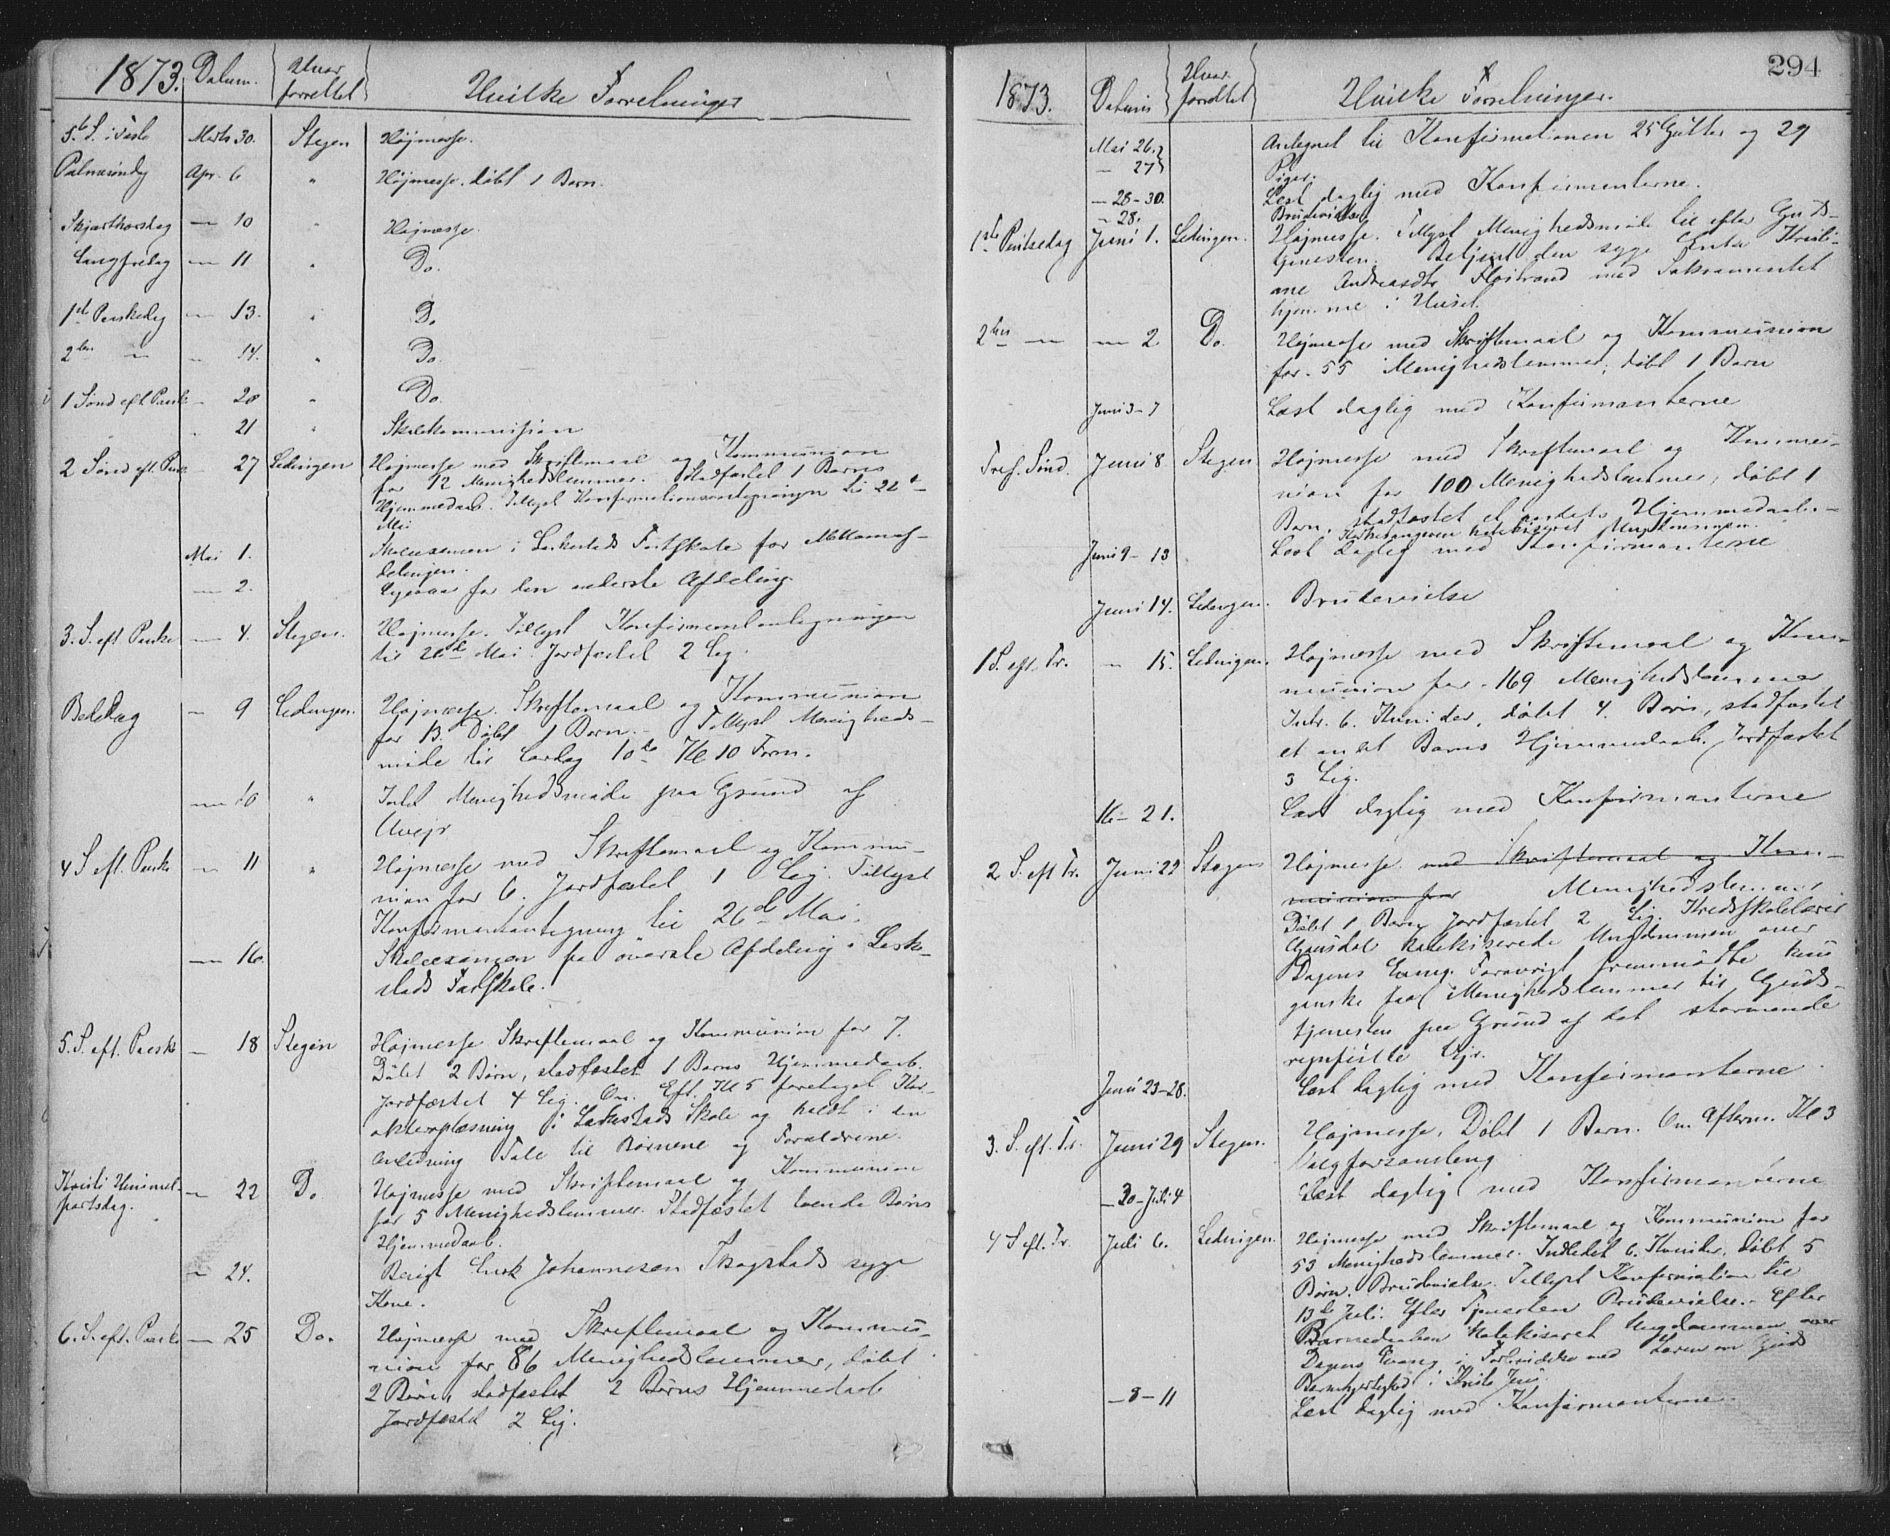 1873. Datum. Hvor forrettet Hvilke Forretninger
5te S. i Faste Marts 30. Stegen Højmesse.
Palmesøndag Apr. 6 " Højmesse. døbt 1 Barn.
Skjærthorsdag — 10 " Højmesse.
Langfredag — 11 " Do.
1ste Paaskedag — 13. " Do
2den — " 14. " Do.
1 Sønd eft Paaske — 20 " Do.
" 21 " Skolekommission
2 Sønd eft. Paaske — 27 Lødingen Højmesse med Skriftemaal og Kommunion
for 12 Menighedslemmer. Stadfæstet 1 Barns
Hjemmedaab. Tillyst Konfirmationsantegningen til 26de
Mai
Mai 1. Skoleexamen i Leikestads Fastskole for Mellemaf-
delingen.
— 2. Ligesaa for den nederste Afdeling.
3. S. eft Paaske — 4. Stegen. Højmesse. Tillyst Konfirmantantegningen
til 26de Mai. Jordfæstet 2 Lig.
Bededag — 9 Lødingen. Højmesse. Skriftemaal og Kommunion
for 13. Døbt 1 Barn. Tillyst Menigheds-
møde til Lørdag 10de Kl 10 Form.
— 10 " Intet Menighedsmøde paa Grund af
Uvejr
4 S. eft. Paaske — 11 " Højmesse med Skriftemaal og Kommu-
nion for 6. Jordfæstet 1 Lig. Tillyst
Konfirmantantegning til 26de Mai.
— 16. Skoleexamen for øverste Afdeling i Leike-
stads Fastskole.
5. S. eft. Paaske — 18 Stegen Højmesse Skriftemaal og Kommunion for 7.
Døbt 2 Børn, stadfæstet 1 Barns Hjemmedaab.
Jordfæstet 4 Lig. Om Eft. Kl 5 foretaget Ka-
rakteroplæsning i Leikestads Skole og holdt i den
Anledning Tale til Børnene og Forældrene.
Kristi Himmel-
fartsdag. — 22 Do Højmesse med Skriftemaal og Kommunion
for 5 Menighedslemmer. Stadfæstet tvende Børns
Hjemmedaab.
— 24. Besøgt Enok Johannesen Skogstads syge
Kone.
6. S. eft. Paaske — 25 Do. Højmesse med Skriftemaal og Kommu-
nion for 86 Menighedslemmer, døbt
2 Børn, stadfæstet 2 Børns Hjemmedaab
Jordfæstet 2 Lig.
294
1873. Datum Hvor forrettet Hvilke Forretninger.
Mai 26. Antegnet til Konfirmationen 25 Gutter og 29
— 27 Piger.
— 28-30. Læst daglig med Konfirmanterne.
— 28. Brudevielse
1ste Pintsedag Juni 1. Lødingen. Højmesse. Tillyst Menighedsmøde til efter Guds-
tjenesten. Betjent den syge Enke Kristi-
ane Andreasdtr Fløstrand med Sakramentet
hjemme i Huset.
2den — — 2 Do. Højmesse med Skriftemaal og Kommunion
for 55 Menighedslemmer, døbt 1 Barn
Juni 3-7 Læst daglig med Konfirmanterne
Tref. Sønd. Juni 8 Stegen Højmesse med Skriftemaal og Kommu-
nion for 100 Menighedslemmer, døbt 1
Barn, stadfæstet et andets Hjemmedaab.
Kirkesangeren katekiseret Ungdommen.
Juni 9-13 Læst daglig med Konfirmanterne
Juni 14. Lødingen. Brudevielse
1 S. eft. Tr. — 15. Lødingen. Højmesse med Skriftemaal og Kom-
munion for 169 Menighedslemmer
Intr. 6. Kvinder, døbt 4. Børn, stadfæstet
et andet Barns Hjemmedaab. Jordfæstet
3 Lig.
16-21. Læst daglig med Konfirmanterne
2. S. eft Tr. Juni 22 Stegen Højmesse med Skriftemaal og Kom-
munion for Menighedslemmer
Døbt 1 Barn Jordfæstet 2 Lig. Kredsskolelærer
Gausdal katekiserede Ungdommen over
Dagens Evang. Forøvrigt fremmødte kun
ganske faa Menighedslemmer til Guds-
tjenesten paa Grund af det stormende
regnfulde Vejr.
Juni 23-28. Læst daglig med Konfirmanterne.
3. S. eft. Tr. Juni 29 Stegen. Højmesse, Døbt 1 Barn. Om Afterm. Kl 3
Valgforsamling
— 30-Juli 4 Læst daglig med Konfirmanterne
4 S eft. Tr. Juli 6. Lødingen. Højmesse med Skriftemaal og Kommunion for
53 Menighedslemmer. Indledet 6. Kvinder, døbt 5
Børn. Brudevielse. Tillyst Konfirmation til
13de Juli. Efter Tjenesten Brudevielse. Efter
Barnedaaben katekiseret Ungdommen over
Dagens Evang. i Forbindelse med Læren om Guds
Barmhjertighed i Kristo Jesu
— 8-11 Læst daglig med Konfirmanterne.